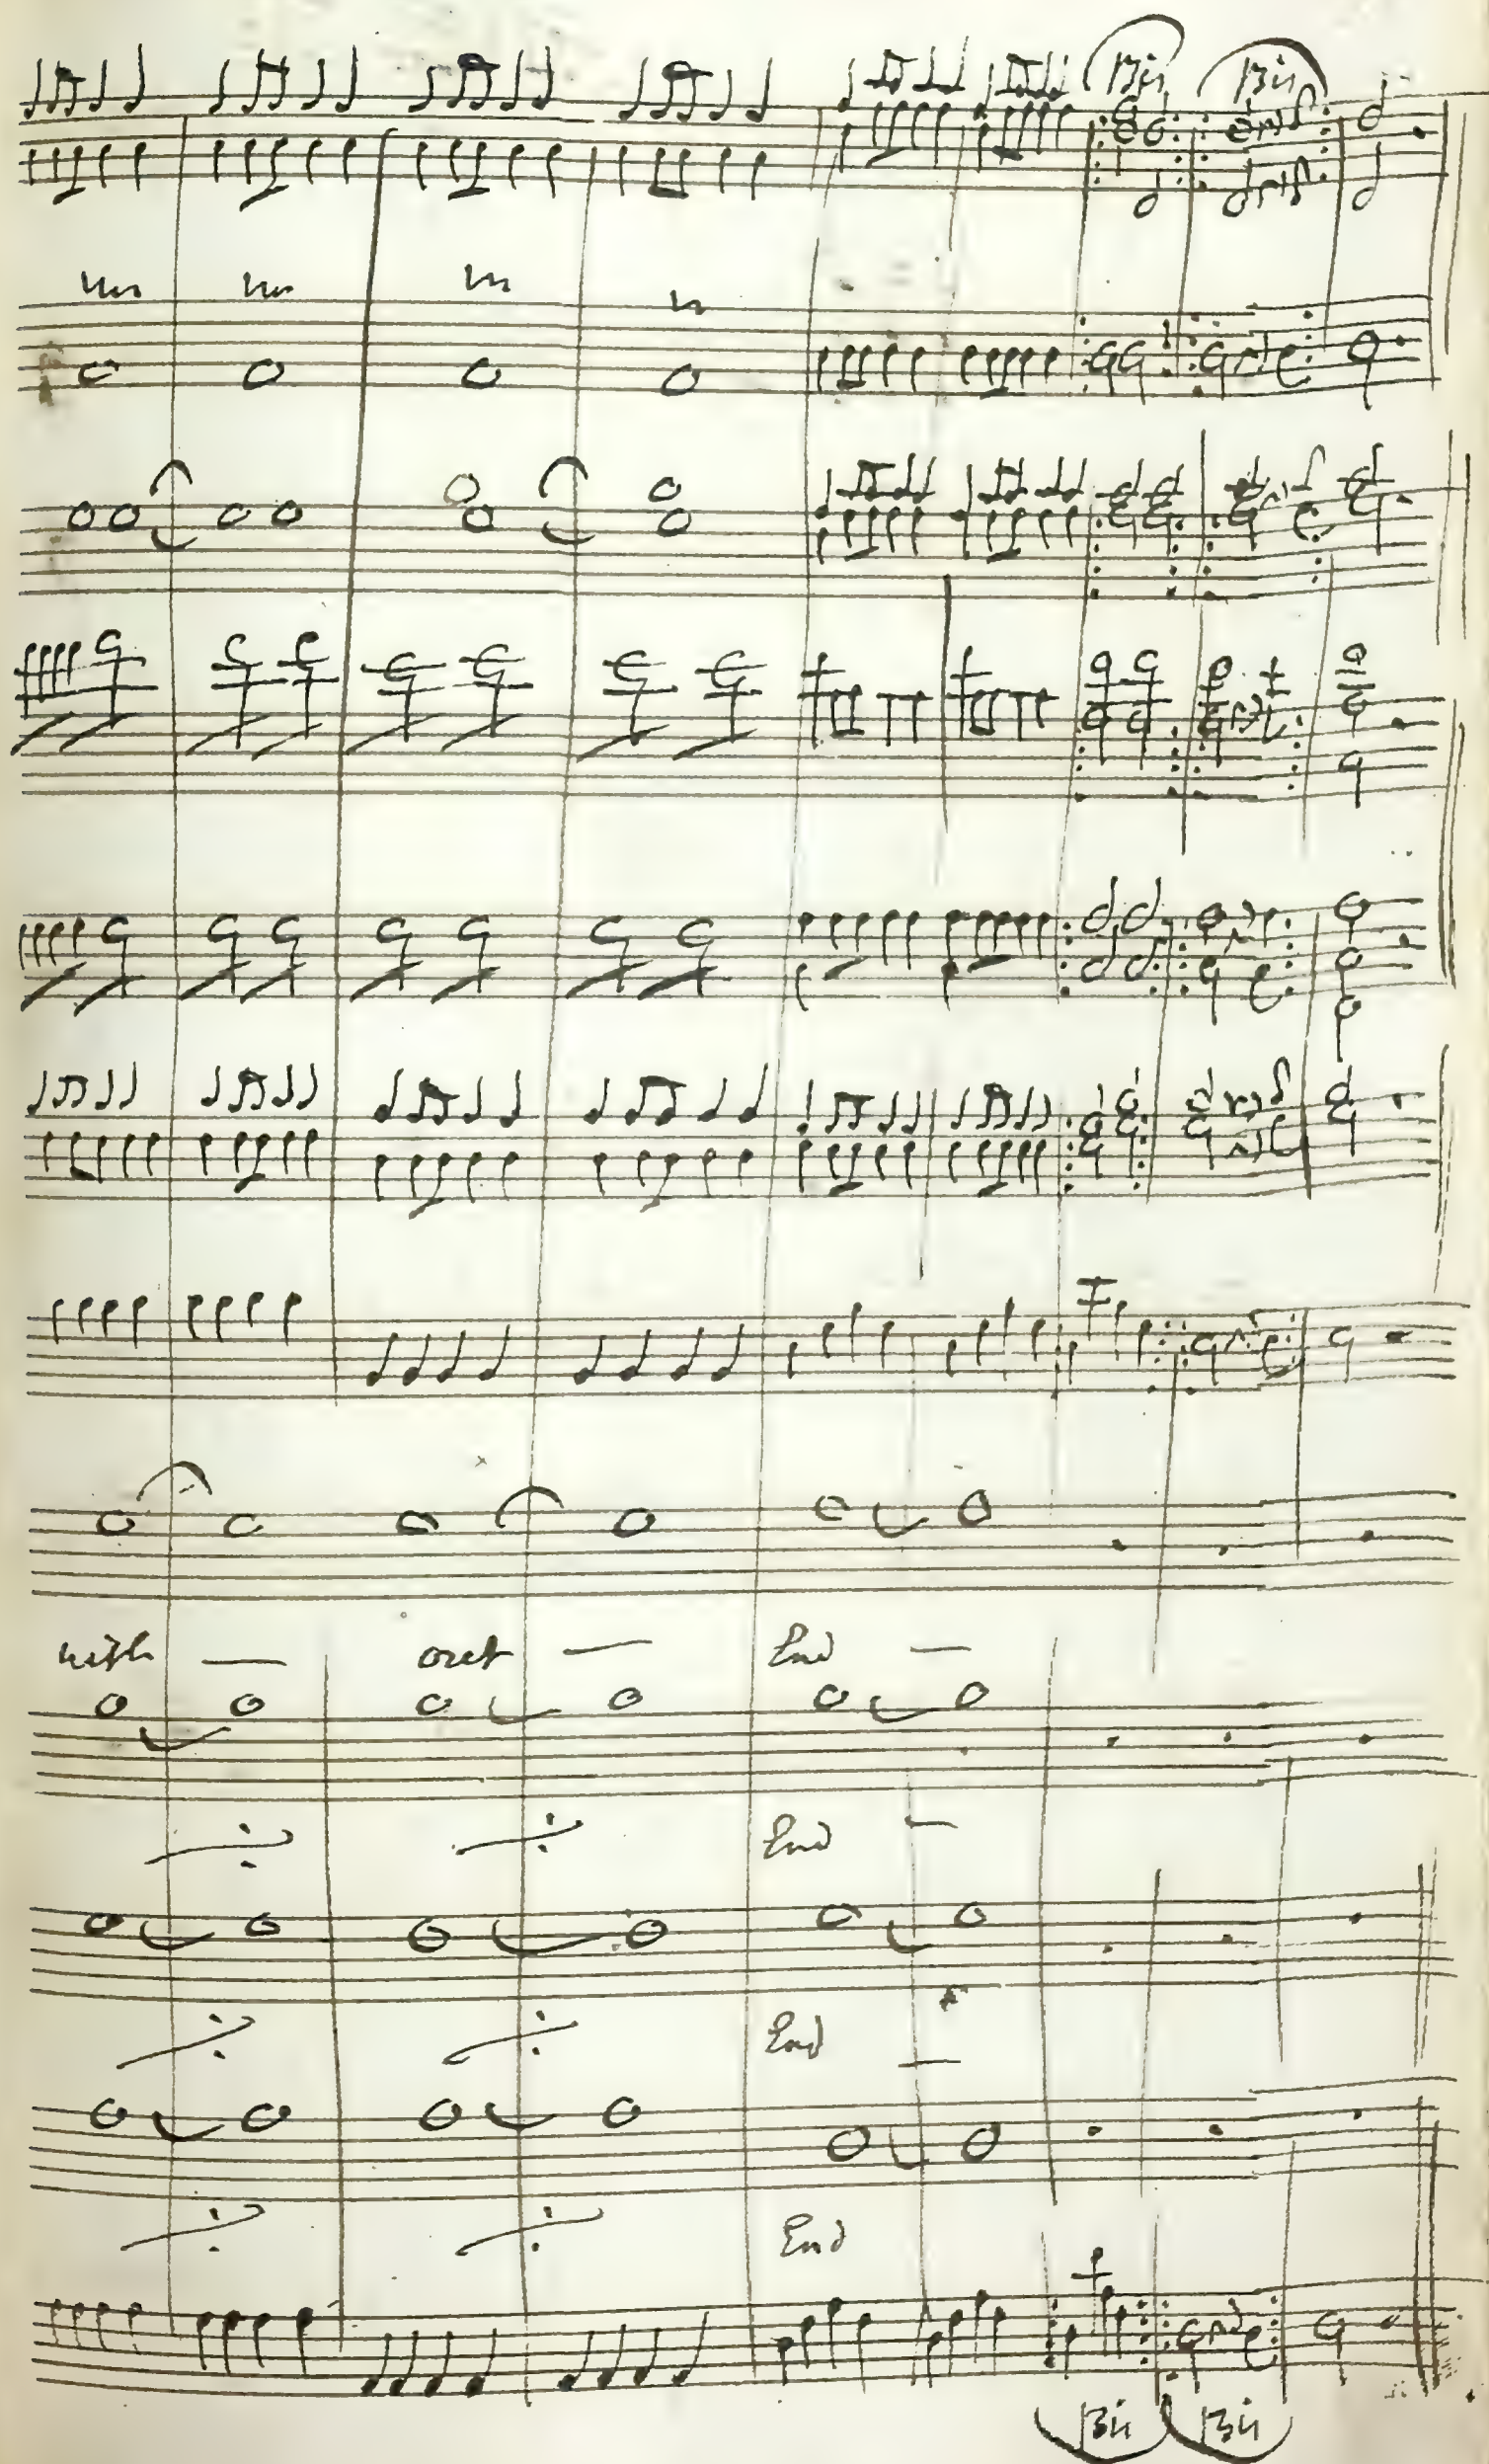 Bis Bis
with — out — End —
End —
End —
End
Bis Bis